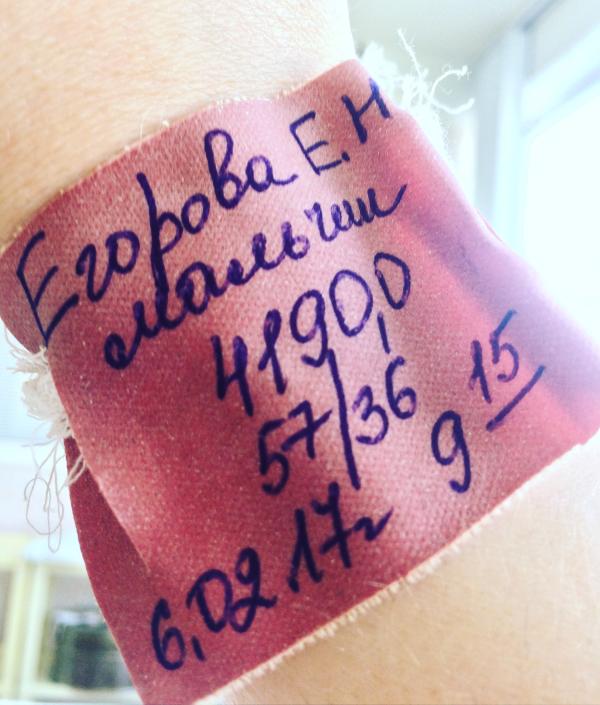 Егорова Е.Н
мальчик
4190,0
57/36 9 15
6,02.17г